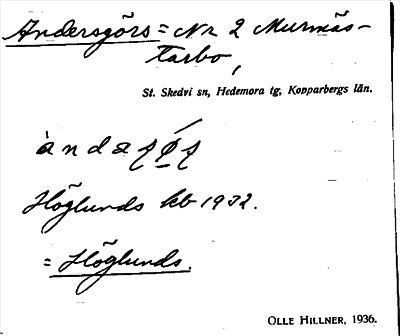 Andersgörs = Nr 2 Murmäs-
tarbo,
St. Skedvi sn, Hedemora tg, Kopparbergs län.
Höglunds kb 1932.
= Höglunds.
OLLE HILLNER, 1936.